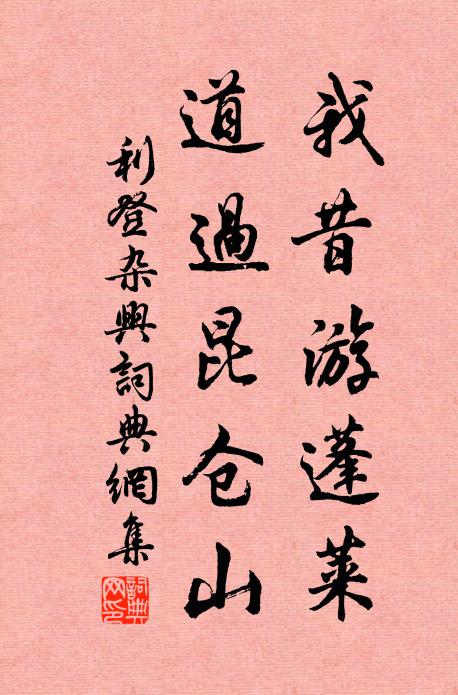 我昔游蓬莱
道過昆仓山
利登杂興詞典網集
詞典
网印